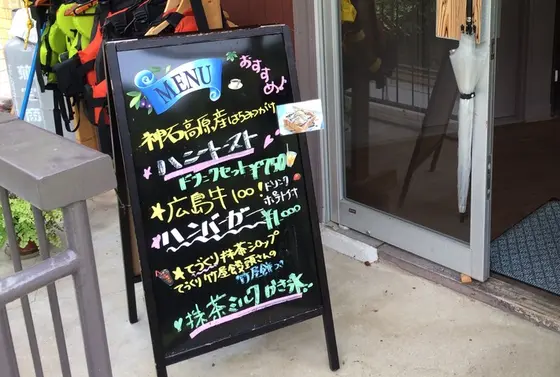 MENU
おすすめ♪
神石高原産はちみつがけ
ハニートースト
ドリンクセット ¥750
★広島牛100!
ドリンク
ポテト付
ハンバーガー ¥1,000
★てづくり抹茶シロップ
てづくり竹屋饅頭さんの
竹屋餅つき
抹茶ミルクかき氷